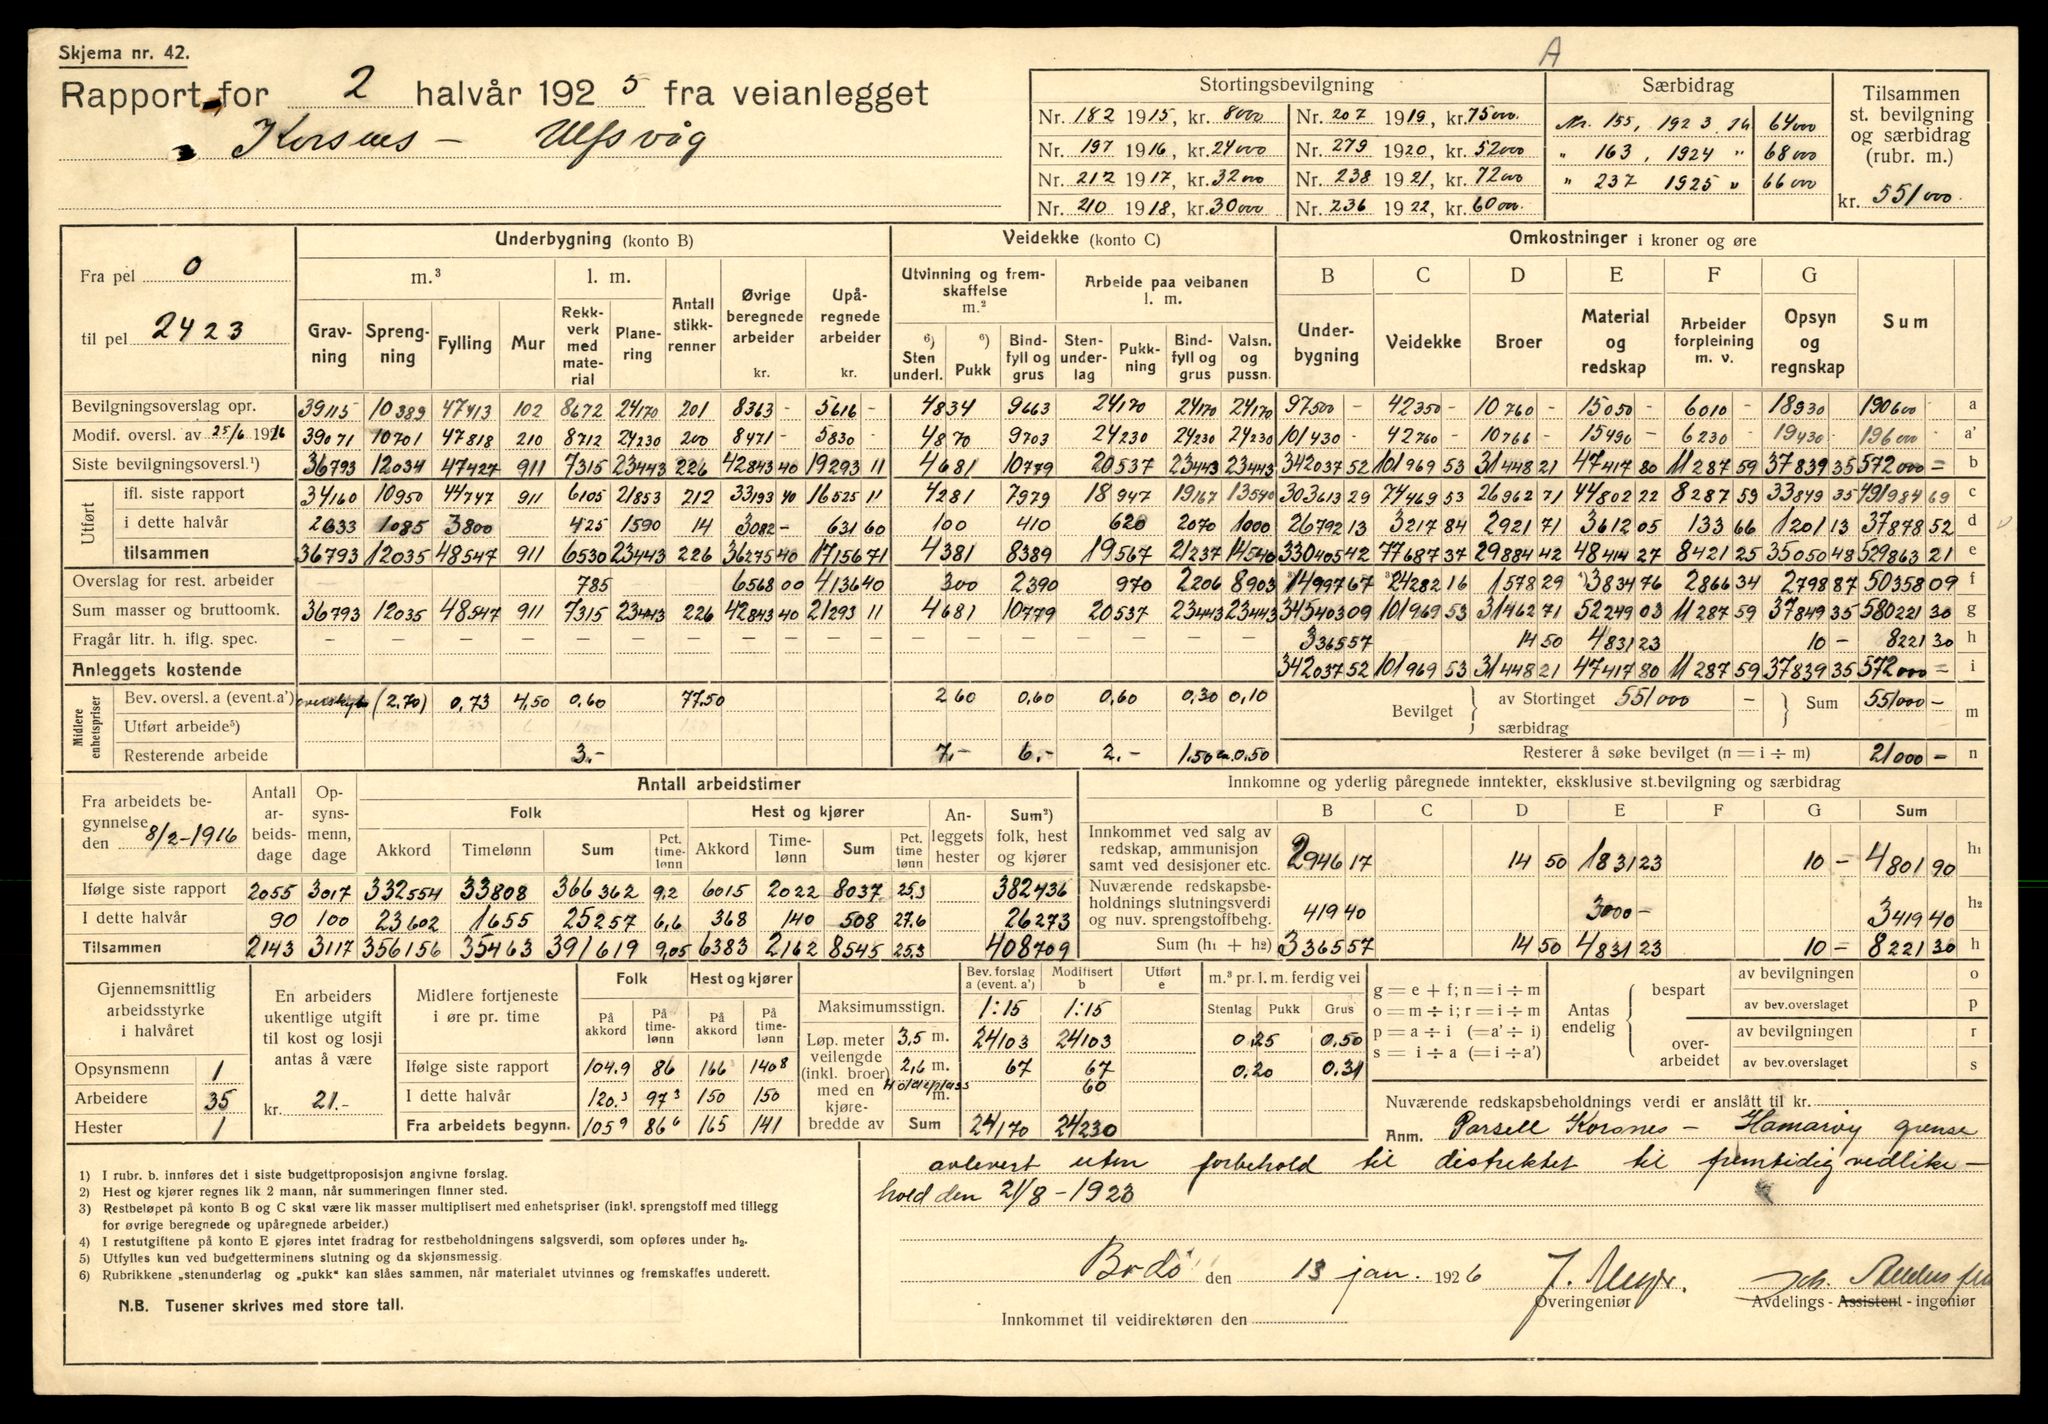 Skjema nr. 42.
A
Rapport for 2 halvår 1925 fra veianlegget
Korsnes - Ulfsvåg
Stortingsbevilgning
Nr. 182 1915, kr. 8000 Nr. 207 1919, kr. 75000
Nr. 197 1916, kr. 24000 Nr. 279 1920, kr. 52000
Nr. 212 1917, kr. 32000 Nr. 238 1921, kr. 72000
Nr. 210 1918, kr. 30000 Nr. 236 1922, kr. 60000
Særbidrag
Nr. 155, 1923 64000
" 163, 1924 " 68000
" 237 1925 " 66000
Tilsammen st. bevilgning og særbidrag (rubr. m.)
kr. 551000
Fra pel 0
til pel 2423
Underbygning (konto B)
m.³ l. m.
Gravning Sprengning Fylling Mur Rekkverk med material Planering Antall stikkrenner Øvrige beregnede arbeider kr. Upåregnede arbeider kr.
Veidekke (konto C)
Utvinning og fremskaffelse m.² Arbeide paa veibanen l. m.
⁶) Sten underl. ⁶) Pukk Bindfyll og grus Stenunderlag Pukkning Bindfyll og grus Valsn. og pussn.
Omkostninger i kroner og øre
B C D E F G
Underbygning Veidekke Broer Material og redskap Arbeider forpleining m. v. Opsyn og regnskap Sum
Bevilgningsoverslag opr. 39115 10389 47413 102 8672 24170 201 8363 - 5616 - 4834 9663 24170 24170 24170 97500 - 42350 - 10760 - 15050 - 6010 - 18930 190600 - a
Modif. oversl. av 25/6 1916 39071 10701 47818 210 8712 24230 200 8471 - 5830 - 4870 9703 24230 24230 24230 101430 - 42760 - 10766 - 15490 - 6230 - 19430 - 196000 - a'
Siste bevilgningsoversl.¹) 36793 12034 47427 911 7315 23443 226 42843 40 19293 11 4681 10779 20537 23443 23443 342037 52 101969 53 31448 21 47417 80 11287 59 37839 35 572000 = b
Utført
ifl. siste rapport 34160 10950 44747 911 6105 21853 212 33193 40 16525 11 4281 7979 18947 19167 13540 303613 29 74469 53 26962 71 44802 22 8287 59 33849 35 491984 69 c
i dette halvår 2633 1085 3800 425 1590 14 3082 - 631 60 100 410 620 2070 1000 26792 13 3217 84 2921 71 3612 05 133 66 1201 13 37878 52 d
tilsammen 36793 12035 48547 911 6530 23443 226 36275 40 17156 71 4381 8389 19567 21237 14540 330405 42 77687 37 29884 42 48414 27 8421 25 35050 48 529863 21 e
Overslag for rest. arbeider — — — — 785 — — 6568 00 4136 40 300 2390 970 2206 8903 14997 67 24282 16 1578 29 3834 76 2866 34 2798 87 50358 09 f
Sum masser og bruttoomk. 36793 12035 48547 911 7315 23443 226 42843 40 21293 11 4681 10779 20537 23443 23443 345403 09 101969 53 31462 71 52249 03 11287 59 37849 35 580221 30 g
Fragår litr. h. iflg. spec. — — — — — — — — — — — — — — 3365 57 14 50 4831 23 10 - 8221 30 h
Anleggets kostende 342037 52 101969 53 31448 21 47417 80 11287 59 37839 35 572000 = i
Midlere enhetspriser
Bev. oversl. a (event. a') (2.70) 0,73 4,50 0.60 77.50 2 60 0,60 0,60 0,30 0,10
Utført arbeide⁵)
Resterende arbeide 3.- 7.- 6.- 2.- 1.50 0.50
Bevilget av Stortinget 551000 - Sum 551000 - m
særbidrag
Resterer å søke bevilget (n = i ÷ m) 21000 - n
Fra arbeidets begynnelse den 8/2-1916
Antall arbeidsdage Opsynsmenn, dage
Antall arbeidstimer
Folk Hest og kjører Anleggets hester Sum²) folk, hest og kjører
Akkord Timelønn Sum Pct. timelønn Akkord Timelønn Sum Pct. time lønn
Ifølge siste rapport 2055 3017 332554 33808 366362 9,2 6015 2022 8037 25.3 382436
I dette halvår 90 100 23602 1655 25257 6,6 368 140 508 27.6 26273
Tilsammen 2143 3117 356156 35463 391619 9,05 6383 2162 8545 25.3 408709
Innkomne og yderlig påregnede inntekter, eksklusive st.bevilgning og særbidrag
B C D E F G Sum
Innkommet ved salg av redskap, ammunisjon samt ved desisjoner etc. 2946 17 14 50 1831 23 10 - 4801 90 h₁
Nuværende redskapsbeholdnings slutningsverdi og nuv. sprengstoffbehg. 419 40 3000 - 3419 40 h₂
Sum (h₁ + h₂) 3365 57 14 50 4831 23 10 - 8221 30 h
Gjennemsnittlig arbeidsstyrke i halvåret
Opsynsmenn 1
Arbeidere 35
Hester 1
En arbeiders ukentlige utgift til kost og losji antas å være
kr. 21.-
Midlere fortjeneste i øre pr. time
Folk Hest og kjører
På akkord På timelønn På akkord På timelønn
Ifølge siste rapport 104.9 86 166 140 8
I dette halvår 120.3 97 3 150 150
Fra arbeidets begynn. 105 9 86 6 165 141
Bev. forslag a (event. a') Modifisert b Utført e
Maksimumsstign. 1:15 1:15
Løp. meter veilengde (inkl. broer) med en kjørebredde av
3,5 m. 24103 24103
2,6 m. 67 67
Holdeplass m. 60
Sum 24170 24230
m.³ pr. l. m. ferdig vei
Stenlag Pukk Grus
0,25 0,50
0.20 0.31
g = e + f; n = i ÷ m
o = m ÷ i; r = i ÷ m
p = a ÷ i (= a' ÷ i)
s = i ÷ a (= i ÷ a')
Antas endelig
bespart av bevilgningen o
av bev.overslaget p
overarbeidet av bevilgningen r
av bev.overslaget s
Nuværende redskapsbeholdnings verdi er anslått til kr.
Anm. Parsell Korsnes - Hamarøy grense
avlevert uten forbehold til distriktet til fremtidig vedlike-
hold den 21/8 - 1923
1) I rubr. b. innføres det i siste budgettproposisjon angivne forslag.
2) Hest og kjører regnes lik 2 mann, når summeringen finner sted.
3) Restbeløpet på konto B og C skal være lik masser multiplisert med enhetspriser (inkl. sprengstoff med tillegg
for øvrige beregnede og upåregnede arbeider.)
4) I restutgiftene på konto E gjøres intet fradrag for restbeholdningens salgsverdi, som opføres under h₂.
5) Utfylles kun ved budgetterminens slutning og da skjønsmessig.
6) Rubrikkene „stenunderlag og „pukk" kan slåes sammen, når materialet utvinnes og fremskaffes underett.
N.B. Tusener skrives med store tall.
Bodø den 13 jan. 1926
Overingeniør
Avdelings-Assistent-ingeniør
Innkommet til veidirektøren den